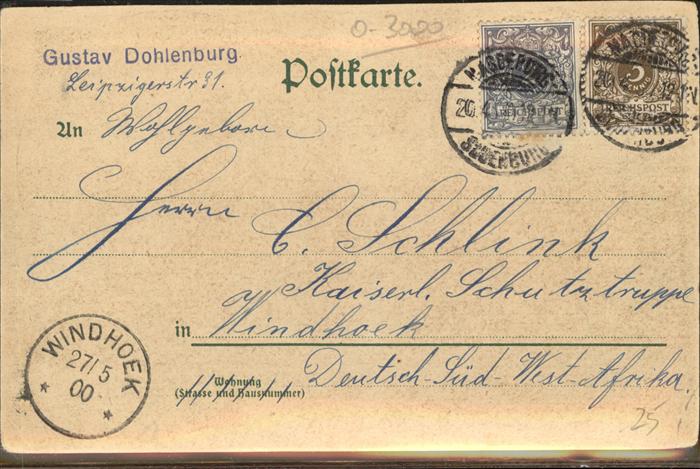 0-3000
Gustav Dohlenburg.
Leipzigerstr 31.
Postkarte.
MAGDEBURG
20.4.
SUDENBURG
REICHSPOST
3
REICHSPOST
An Wohlgeboren
Herrn
C. Schlink
Kaiserl. Schutztruppe
in Windhoek
WINDHOEK
27/5
00
Wohnung
(Strasse und Hausnummer)
Deutsch-Süd-West-Afrika.
25